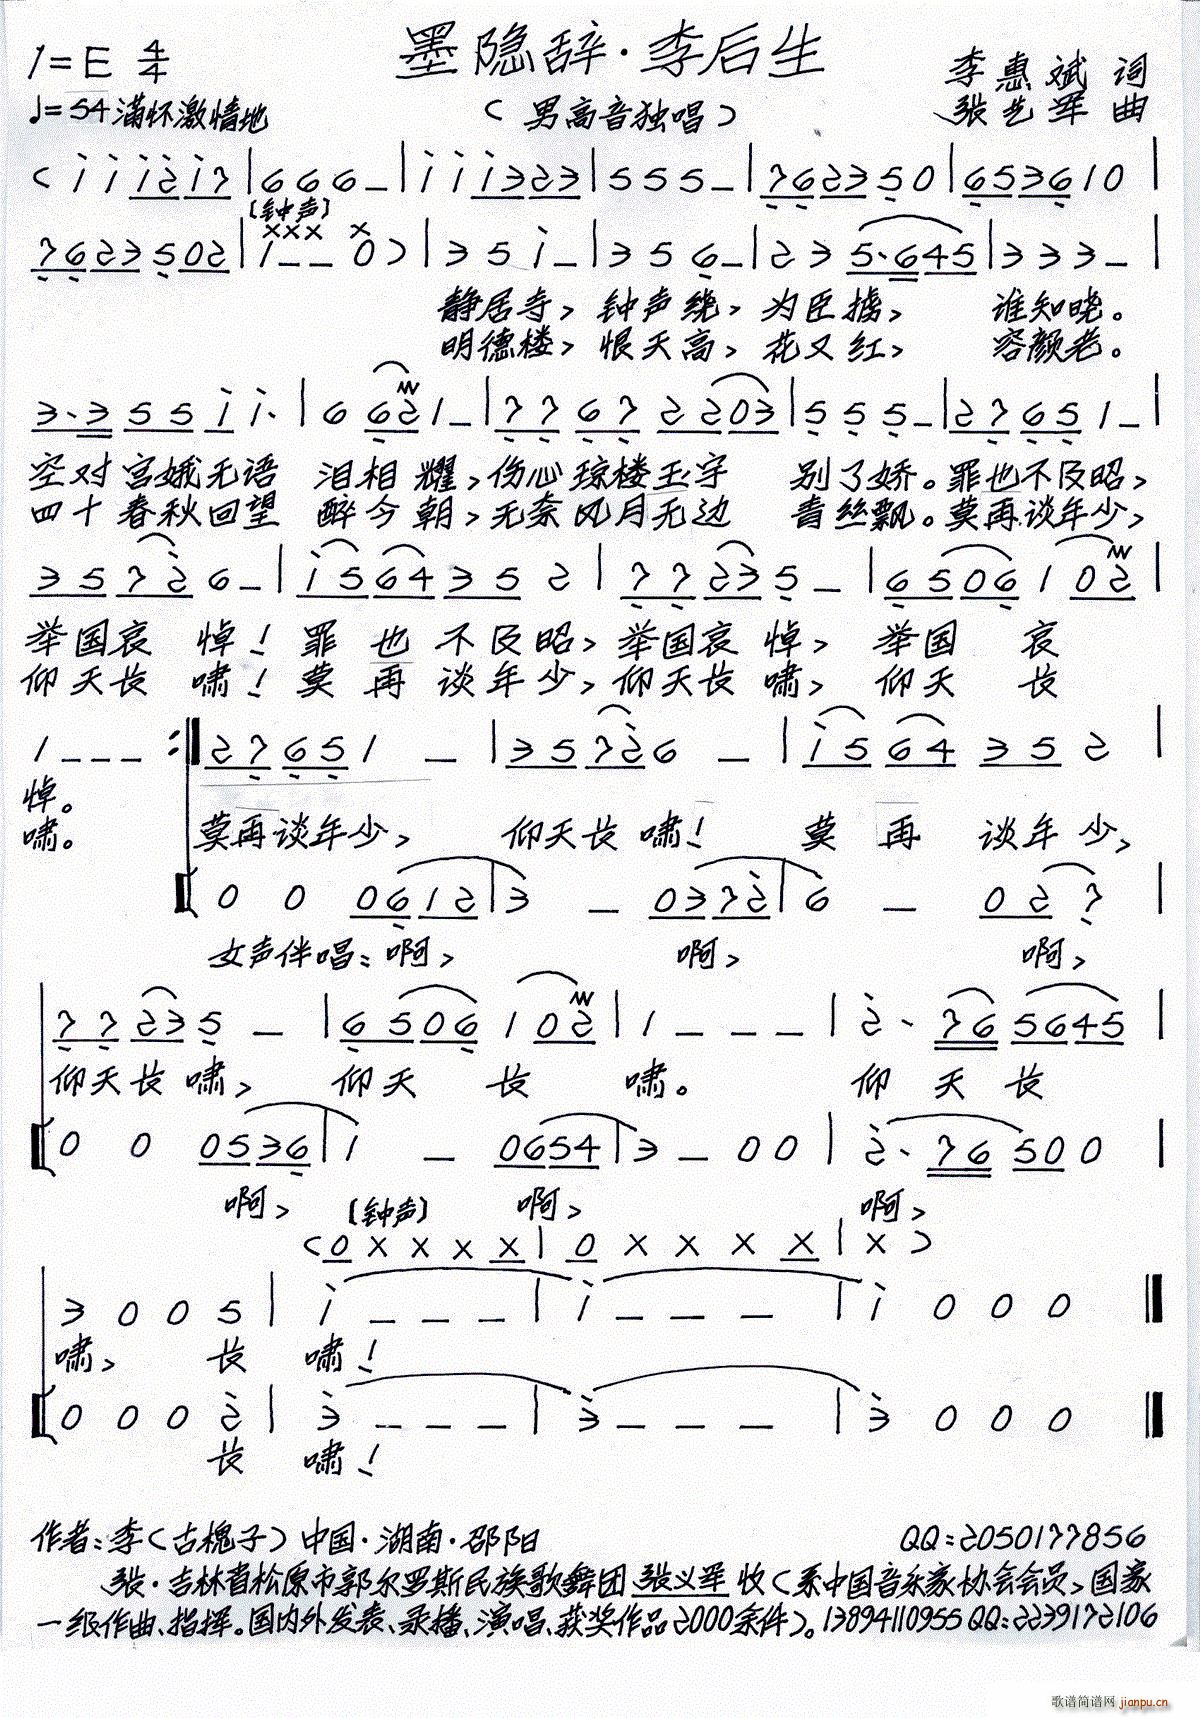 墨隐辞·李后生
1=E 4/4
李惠斌 词
♩=54 满怀激情地
（男高音独唱）
张艺军 曲
（i i i2i7|666–|i i i323|555–|762350|653610|
[钟声]
×××  ×
7623502|1––0）|35i–|356–|235·645|333–|
静居寺，钟声绕，为臣掳，谁知晓。
明德楼，恨天高，花又红，容颜老。
3·355ii·|6621–|77672203|555–|27651–|
空对宫娥无语 泪相耀，伤心琼楼玉宇 别了娇。罪也不及昭，
四十春秋回望 醉今朝，无奈风月无边 青丝飘。莫再谈年少，
35726–|i564352|77235–|6506102|
举国哀 悼！罪也不及昭，举国哀悼，举国 哀
仰天长 啸！莫再谈年少，仰天长啸，仰天 长
1–––:‖27651–|35726–|i564352|
悼。
啸。 莫再谈年少， 仰天长啸！ 莫再谈年少，
0 0 0612|3–0372|6–027|
女声伴唱：啊， 啊， 啊，
77235–|6506102|1–––|2·765645|
仰天长啸， 仰天长 啸。 仰天长
0 0 0536|1–0654|3–00|2·76500|
啊， [钟声] 啊， 啊，
（0××××|0××××|×）
3005|i–––|i–––|i000‖
啸， 长 啸！
0002|3–––|3–––|3000‖
长 啸！
作者：李（古槐子）中国·湖南·邵阳 QQ：2050177856
张·吉林省松原市郭尔罗斯民族歌舞团 张义军 收（系中国音乐家协会会员，国家
一级作曲、指挥。国内外发表、录播、演唱、获奖作品2000余件）。13894110955 QQ：2239172106
歌谱简谱网 jianpu.cn